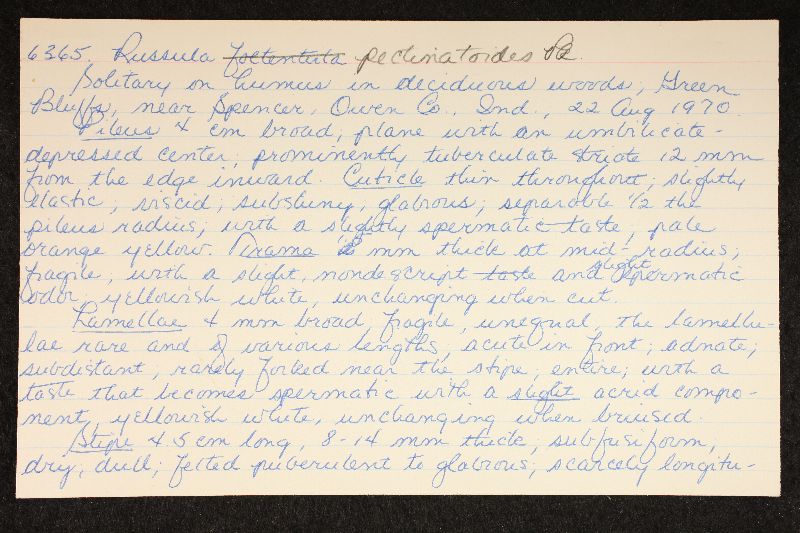 6365. Russula foetentula pectinatoides Pk.
Solitary on humus in deciduous woods; Green
Bluffs, near Spencer, Owen Co., Ind., 22 Aug 1970.
Pileus 4 cm broad; plane with an umbilicate-
depressed center; prominently tuberculate striate 12 mm
from the edge inward. Cuticle thin throughout; slightly
elastic; viscid; subslimy; glabrous; separable 1/2 the
pileus radius; with a slightly spermatic taste; pale
orange yellow. Trama mm thick at mid-radius;
fragile, with a slight, nondescript taste and slight spermatic
odor, yellowish white, unchanging when cut.
Lamellae 4 mm broad, fragile, unequal, the lamellu-
lae rare and of various lengths; acute in front; adnate;
subdistant; rarely forked near the stipe; entire; with a
taste that becomes spermatic with a slight acrid compo-
nent, yellowish white, unchanging when bruised.
Stipe 4.5 cm long, 8-14 mm thick; subfusiform;
dry, dull; felted puberulent to glabrous; scarcely longitu-